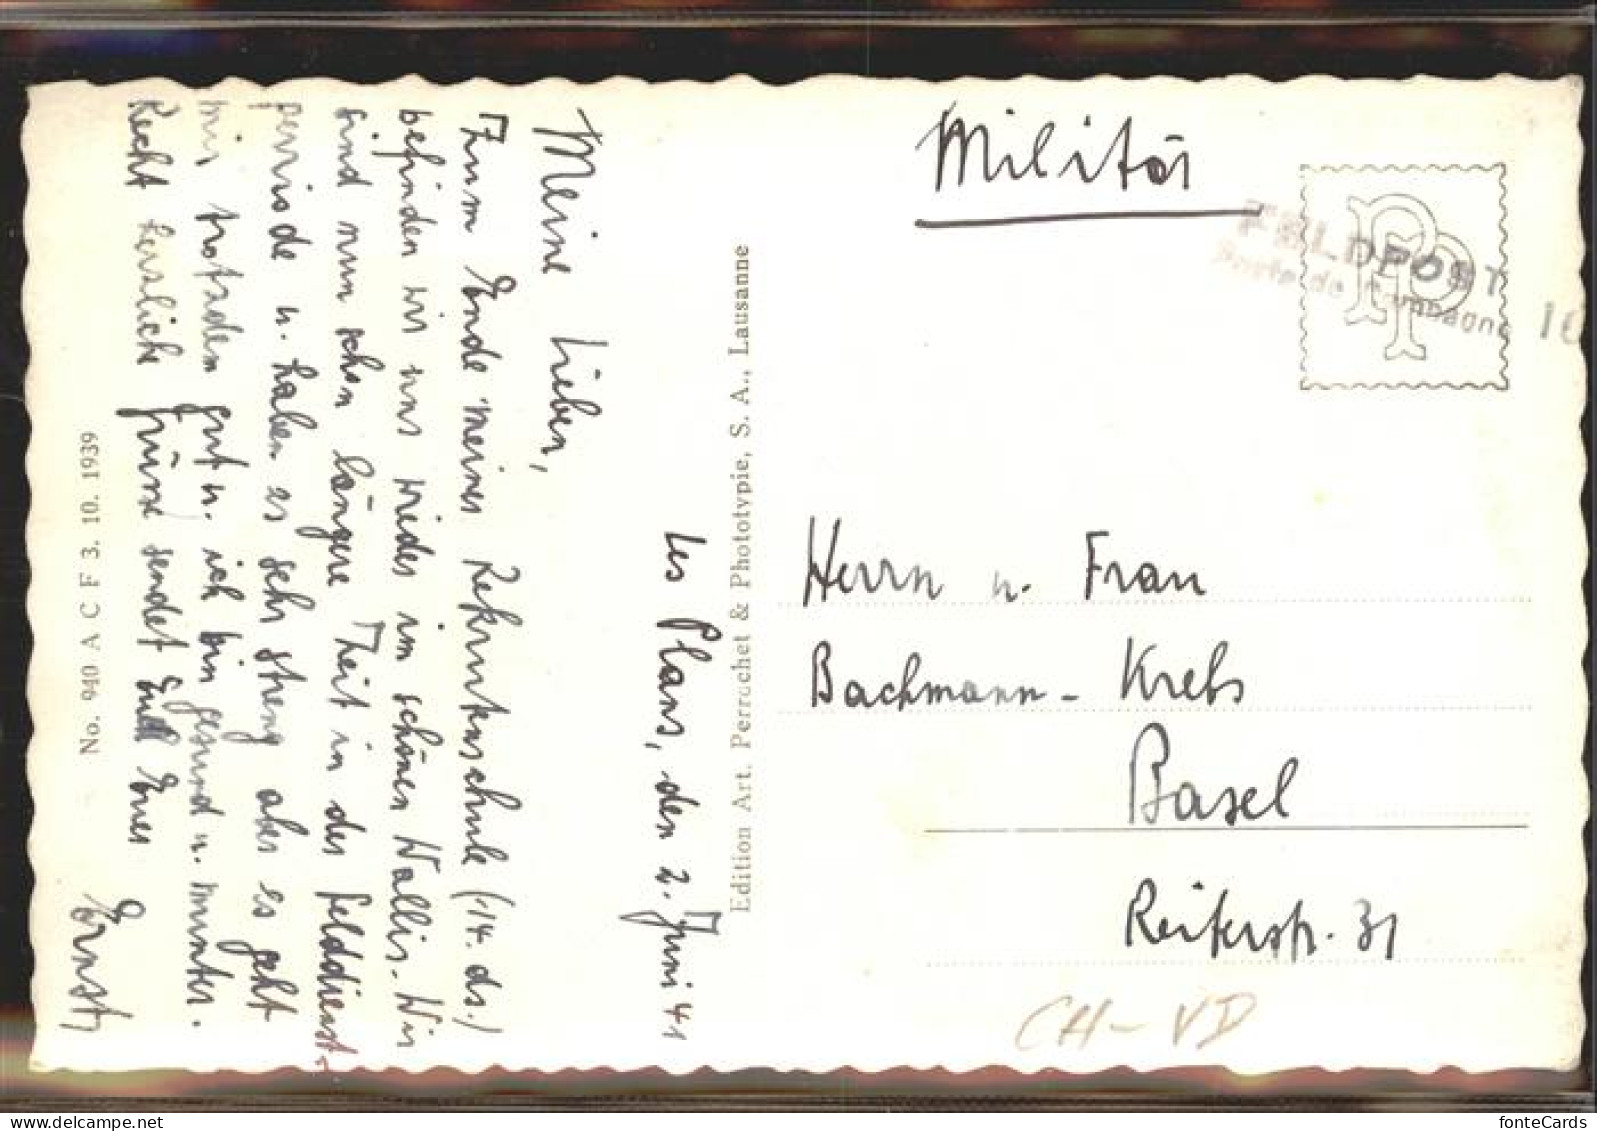 Les Plans, den 2. Juni 41
Meine Lieben,
Zum Ende meiner Rekrutenschule (14. ds.)
befinden wir uns wieder im schönen Wallis. Wir
sind nun schon längere Zeit in der Felddienst-
perriode u. haben es sehr streng aber es geht
mir trotzdem gut u. ich bin gesund u. munter.
Recht herzliche Grüsse sendet Euch Euer
Ernst
No. 940 A C F 3. 10. 1939
Edition Art. Perrochet & Phototypie, S. A., Lausanne
Militär
PP
FELDPOST
Poste de Campagne
Herrn u. Frau
Bachmann - Krebs
Basel
Reiterstr. 31
CH - VD
fonteCards